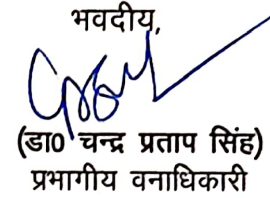 भवदीय,
(डा0 चन्द्र प्रताप सिंह)
प्रभागीय वनाधिकारी